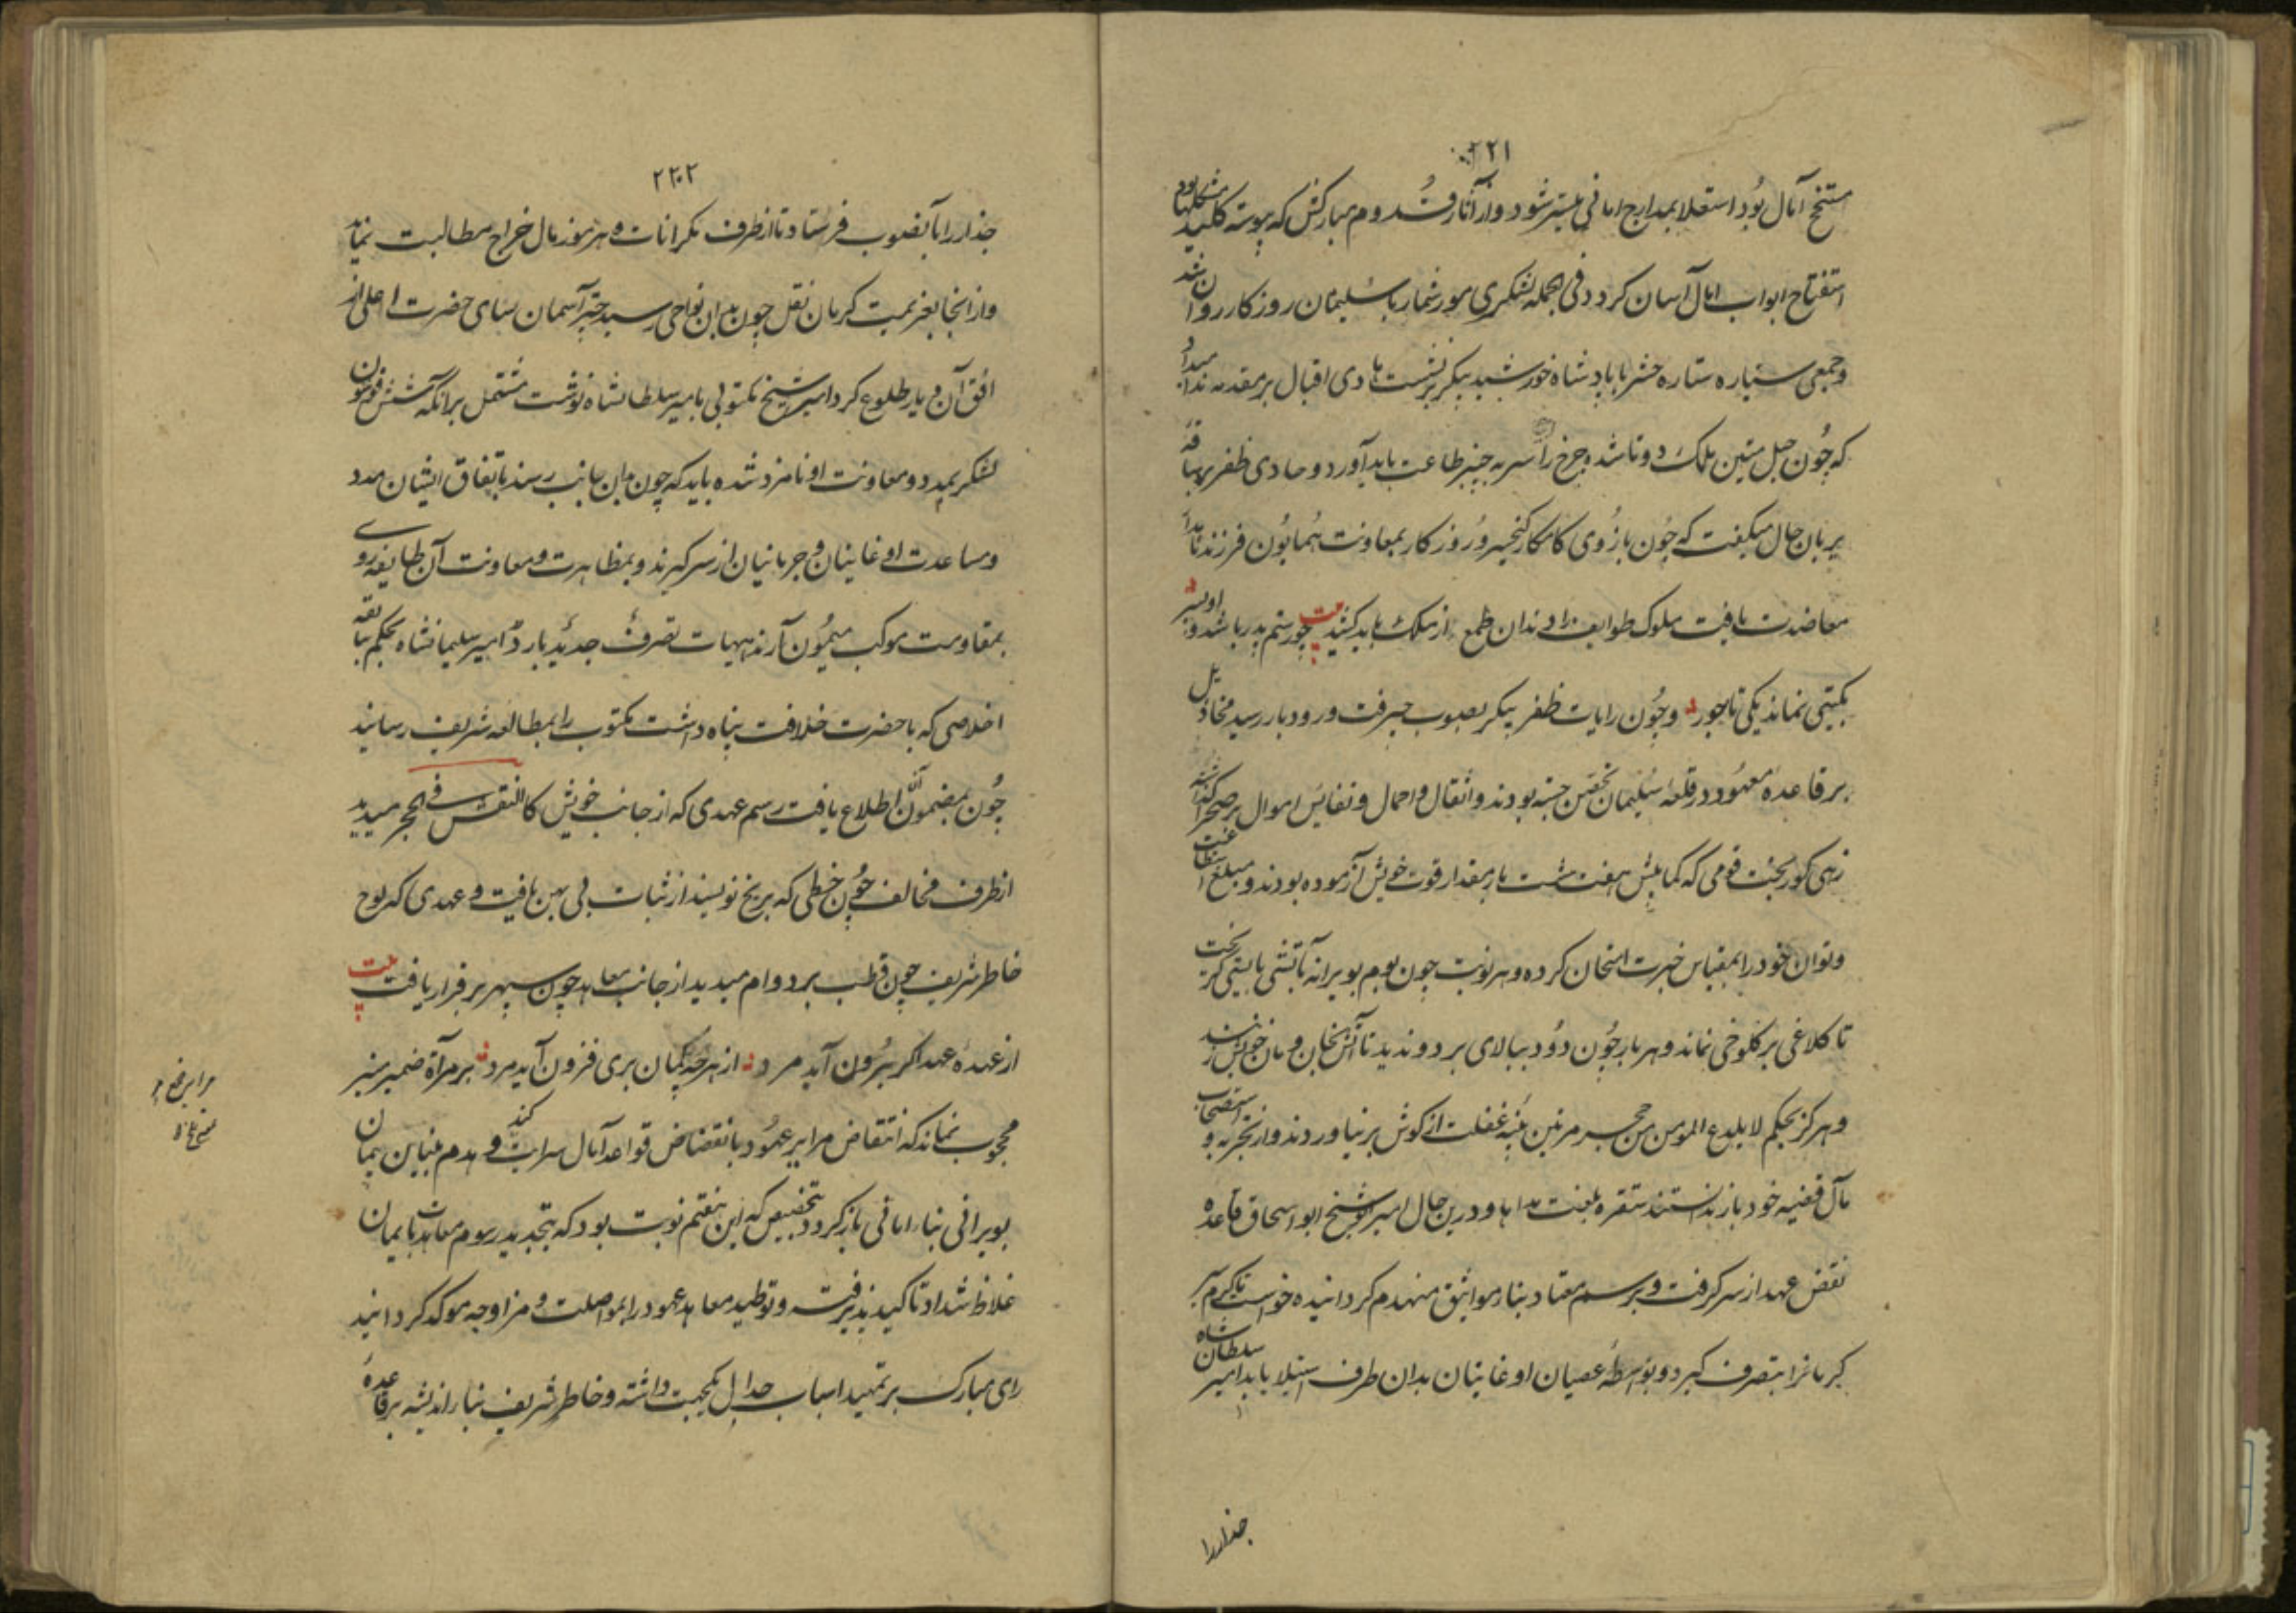 ۲۲۱
مستنجح آمال بود استعلا بمدارج امانی میسر شود و از آثار قدوم مبارکش که پیوسته کلید مشکلها بود
استفتاح ابواب امال آسان کردد فی الجمله لشکری مور شمار با سلیمان روزکار روان شد
و جمعی سیاره ستاره حشر با پادشاه خورشید پیکر برنشست هادی اقبال بر مقدمه ندا میداد
که چون حبل متین ملک دوتا شد چرخ را سر به چنبر طاعت باید آورد و حادی ظفر بر ساقه
بزبان حال میکفت که چون بازوی کامکار کیخسرو روزکار بمعاونت همایون فرزند نامدار
معاضدت یافت ملوک طوایف را دندان طمع از ملک باید کند بیت چو رستم پدر باشد و او پسر
بکیتی نماند یکی تاجور و چون رایات ظفر پیکر بصوب جیرفت و رودبار رسید مخاذیل
بر قاعده معهود در قلعه سلیمان تحصن جسته بودند و اثقال و احمال و نفایس اموال بر صحرا گذاشته
زهی کور بخت قومی که کمابیش هفت هشت بار مقدار قوت خویش آزموده بودند و مبلغ استطاعت
و توان خود را بمقیاس خبرت امتحان کرده و هر نوبت چون بوم بویرانه
تا کلاغی بر کلوخی نماند و هر بار چون دود ببالای بر دویدند تا آتش بخان و مان خویش زنند
و هرکز بحکم لا یلدغ المومن من جحر مرتین پنبه غفلت از کوش بر نیاوردند و از تجربه و استصحاب
مآل قضیه خود باز ندانستند و درین حال امیر شیخ ابو اسحاق قاعده
نقض عهد از سر کرفت و بر رسم معتاد بناء مواثیق منهدم کردانیده خواست تا
کرمانرا بتصرف کیرد و بواسطه عصیان اوغانیان بدان طرف استیلا یابد امیر سلطان شاه
جندار را
۲۲۲
جندار را بآنصوب فرستاد تا از طرف مکرانات و هرموز مال خراج مطالبت نماید
و از انجا بعزیمت کرمان نقل چون بدان نواحی رسید چتر آسمان سای حضرت اعلی از
افق آن دیار طلوع کرد امیر شیخ مکتوبی بامیر سلطانشاه نوشت مشتمل بر آنکه شش قوشون
لشکر بمدد و معاونت او نامزد شده باید که چون بدان جانب رسند باتفاق ایشان مدد
و مساعدت اوغانیان و جرمانیان از سر کیرند و بمظاهرت و معاونت آن طایفه روی
بمقاومت موکب میمون آرند هیهات تصرف جدید بارد امیر سلیمانشاه بحکم سابقه
اخلاصی که با حضرت خلافت پناه داشت مکتوب را بمطالعه شریف رسانید
چون بمضمون آن اطلاع یافت رسم عهدی که از جانب خویش کالنقش فی الحجر میدید
از طرف مخالف چون خطی که بر یخ نویسند از ثبات بی بهره یافت و عهدی که بر لوح
خاطر شریف چون قطب بر دوام میدید از جانب معاهد چون سپهر بر قرار یافت بیت
از عهده عهد اکر برون آید مرد از هر چه گمان بری فزون آید مرد بر مرآة ضمیر منیر
محجوب نماند که انتقاض مرایر عهود بانقضاض قواعد آمال سرایت کند و هدم مبانی پیمان
بویرانی بناء امانی باز کردد بتخصیص که این هفتم نوبت بود که تجدید رسوم معاهد بایمان
غلاظ شداد تاکید پذیرفت و توطید معاهد عهود را بمواصلت و مزاوجه موکد کردانید
رای مبارک بر تمهید اسباب جدال یکجهت داشته و خاطر شریف بناء اندیشه بر قاعده